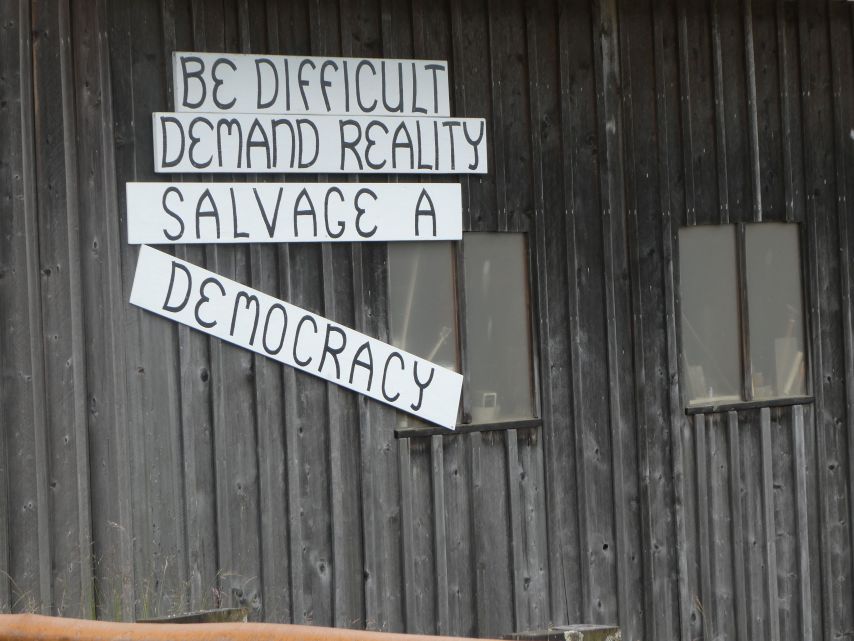 BE DIFFICULT
DEMAND REALITY
SALVAGE A
DEMOCRACY